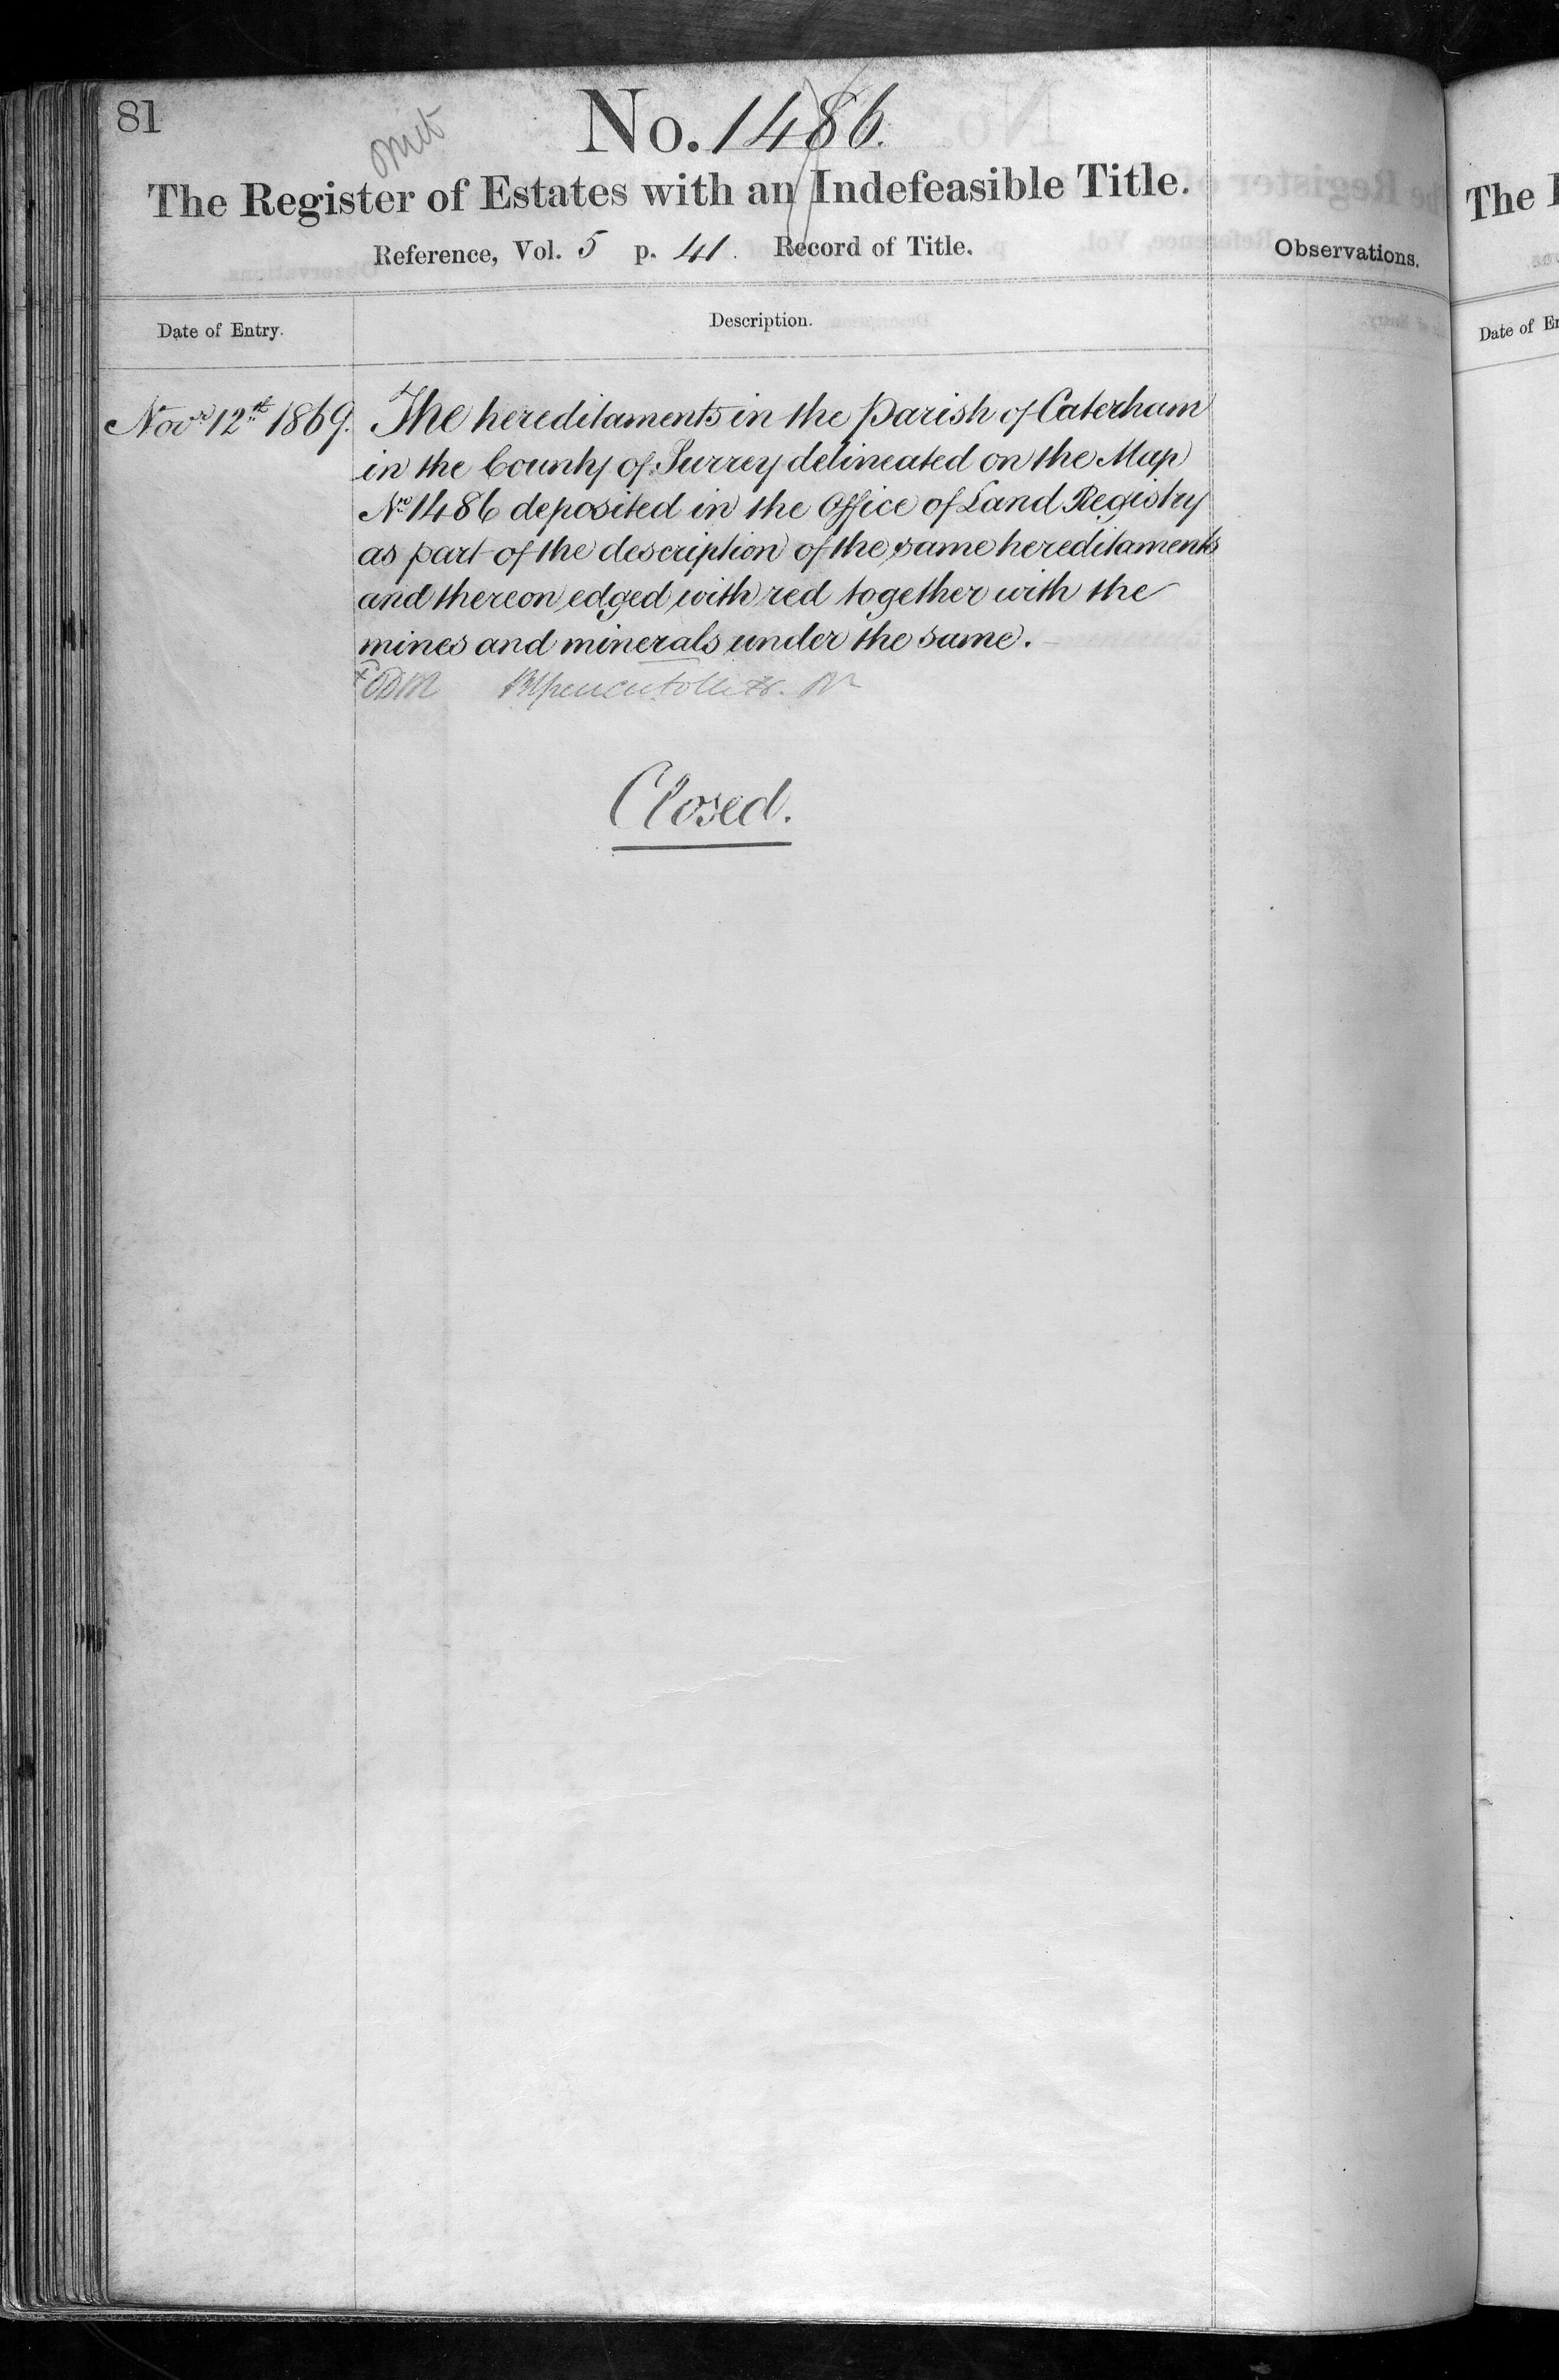 81
omit
No. 1486.
The Register of Estates with an Indefeasible Title.
Reference, Vol. 5 p. 41. Record of Title.
Observations.
Date of Entry.
Description.
Novr 12th 1869.
The hereditaments in the Parish of Caterham
in the County of Surrey delineated on the Map
No 1486 deposited in the Office of Land Registry
as part of the description of the same hereditaments
and thereon edged with red together with the
mines and minerals under the same.
Closed.
The
Date of